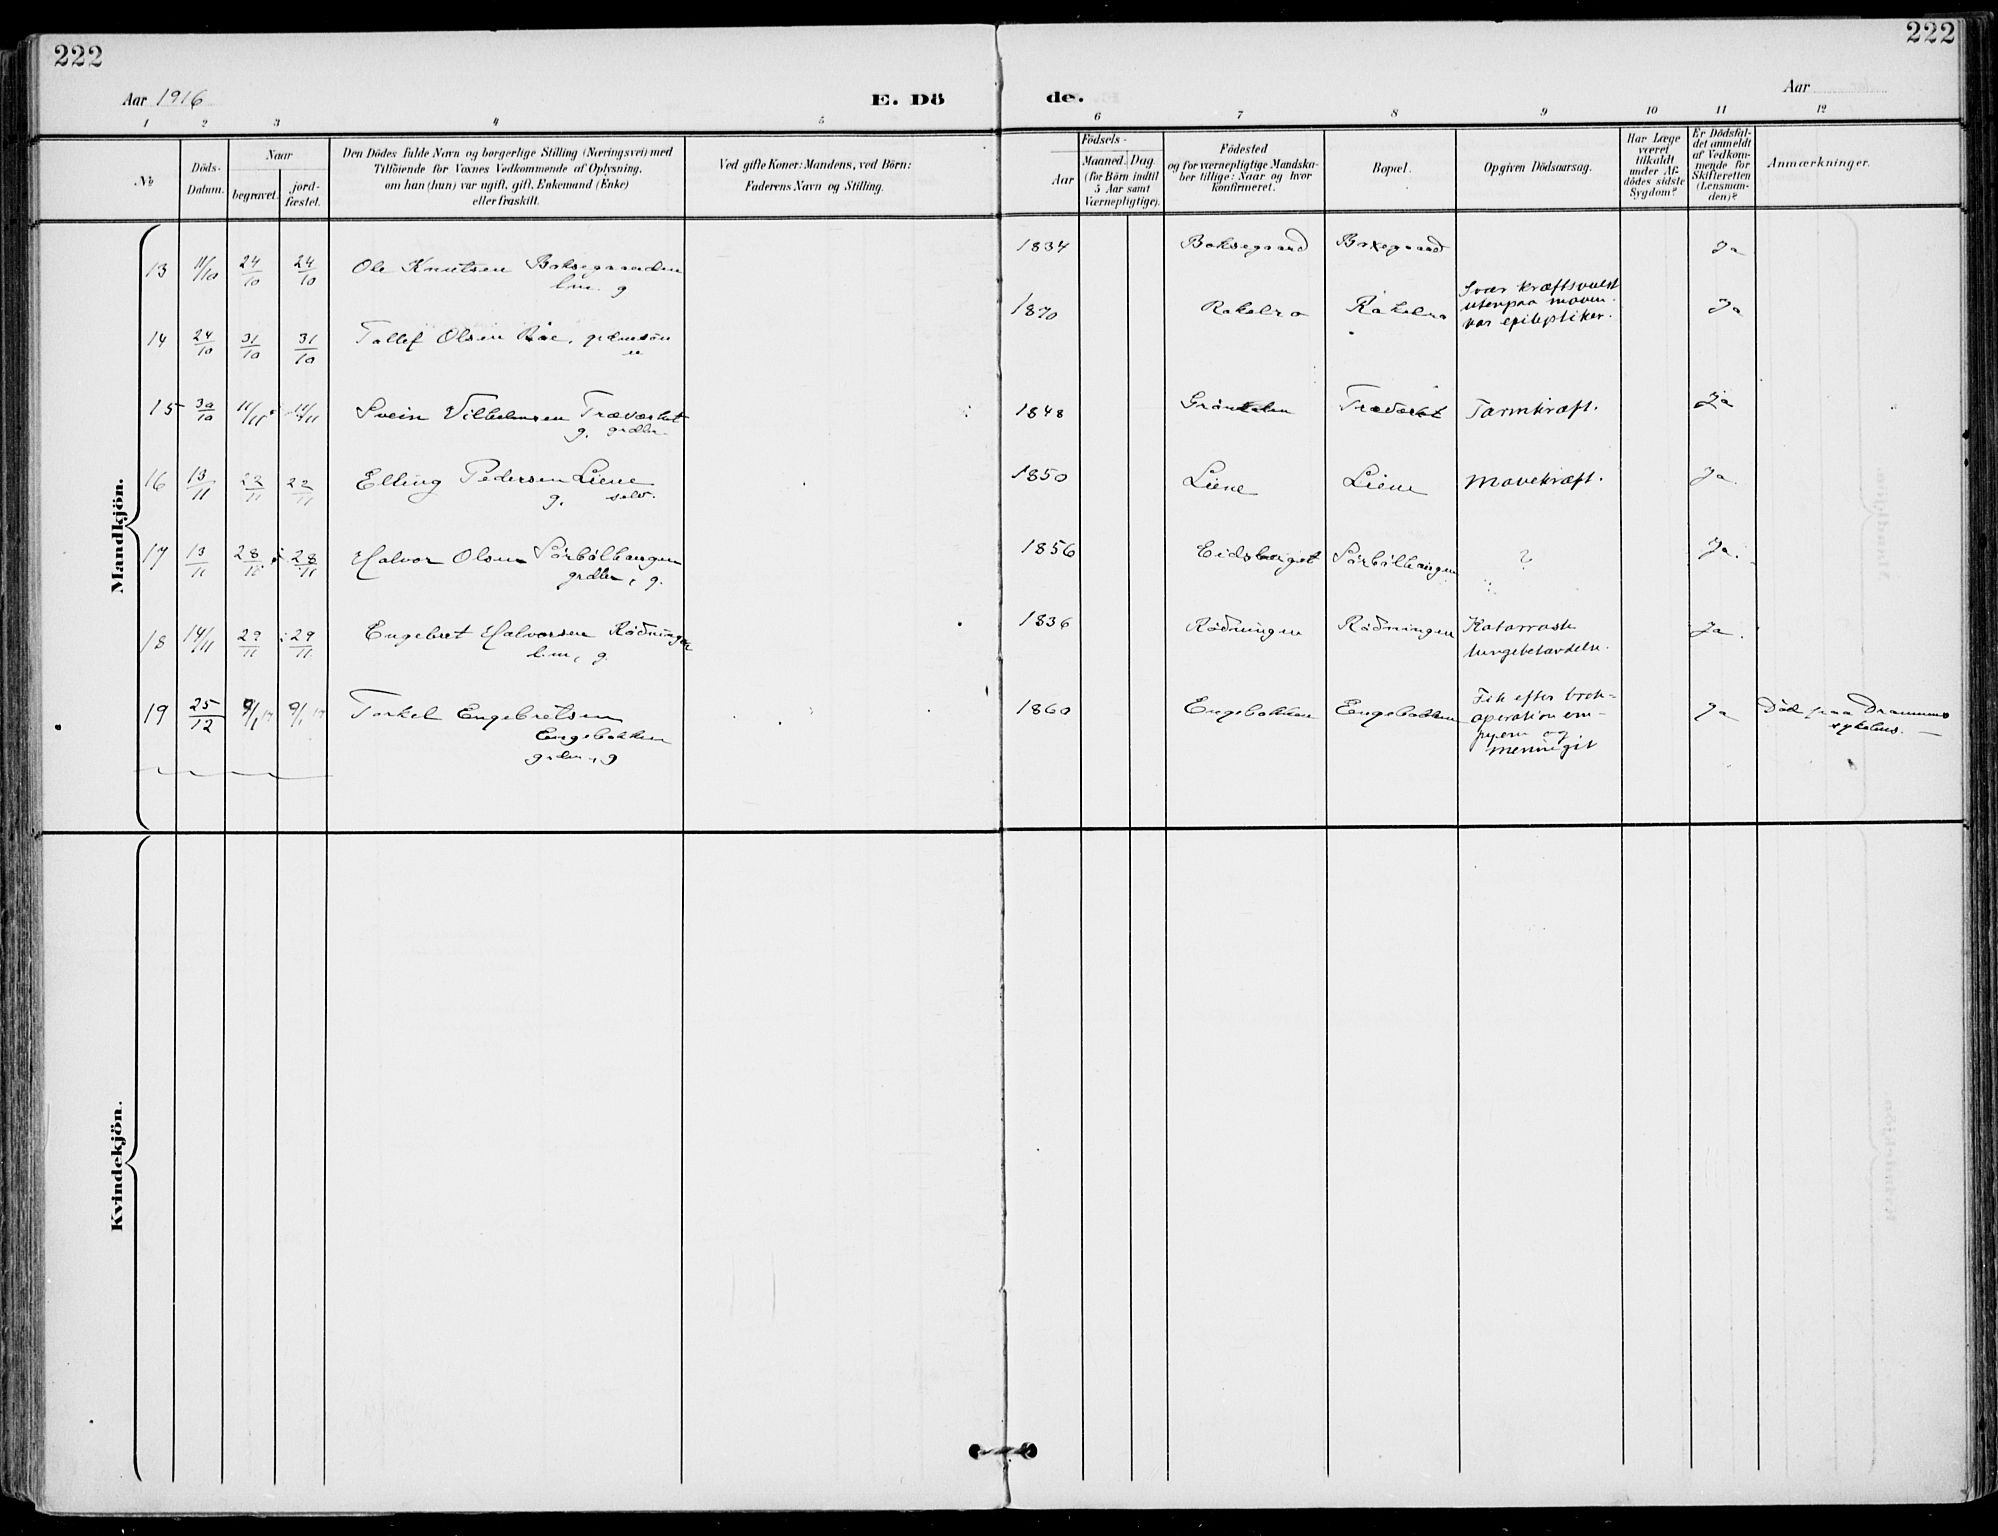 222
222
Aar 1916
E. Dö
de.
Aar
1 2 3 4 5
6 7 8 9 10 11 12
No
Döds-
Datum.
Naar
begravet.
jord-
fæstet.
Den Dödes fulde Navn og borgerlige Stilling (Næringsvei) med
Tilföiende for Voxnes Vedkommende af Oplysning,
om han (hun) var ugift, gift, Enkemand (Enke)
eller fraskilt.
Ved gifte Koner: Mandens, ved Börn:
Faderens Navn og Stilling.
Födsels-
Aar
Maaned. Dag.
(for Börn indtil
5 Aar samt
Værnepligtige).
Födested
og for værnepligtige Mandska-
ber tillige: Naar og hvor
konfirmeret.
Bopæl.
Opgiven Dödsaarsag.
Har Læge
været
tilkaldt
under Af-
dödes sidste
Sygdom?
Er Dödsfal-
det anmeldt
af Vedkom-
mende for
Skifteretten
(Lensman-
den)?
Anmærkninger.
Mandkjön.
13 11/10 24/10 24/10 Ole Knutsen
g
1834 Boksegaard Boxegaard Ja
14 24/10 31/10 31/10 Tollef Olsen
1870 Rakelra Rakelra Svær kræftsvulst
utenpaa maven.
var epileptiker.
Ja
15 30/10 11/11 11/11 Svein Vilhelmsen Træværket
g. grdbr.
1848 Tarmkræft. Ja
16 13/11 22/11 22/11 Elling Pedersen Liene
g. selv.
1850 Liene Liene Mavekræft. Ja.
17 13/11 28/11 28/11 Halvor Olsen Sörbölhaugen
grdbr, g.
1856 Eidsberget Sörbölhaugen ? Ja.
18 14/11 29/11 29/11 Engebret Halvorsen Rödningen
g.
1836 Rödningen Rödningen Katarralsk
lungebetændelse.
Ja.
19 25/12 9/1 17 9/1 17 Torkel Engebretsen
Engebakken
g
1860 Engebakken Engebakken Fik efter brok-
operation em-
pyem og
meningit
Ja Död paa Drammens
sykehus.
Kvindekjön.